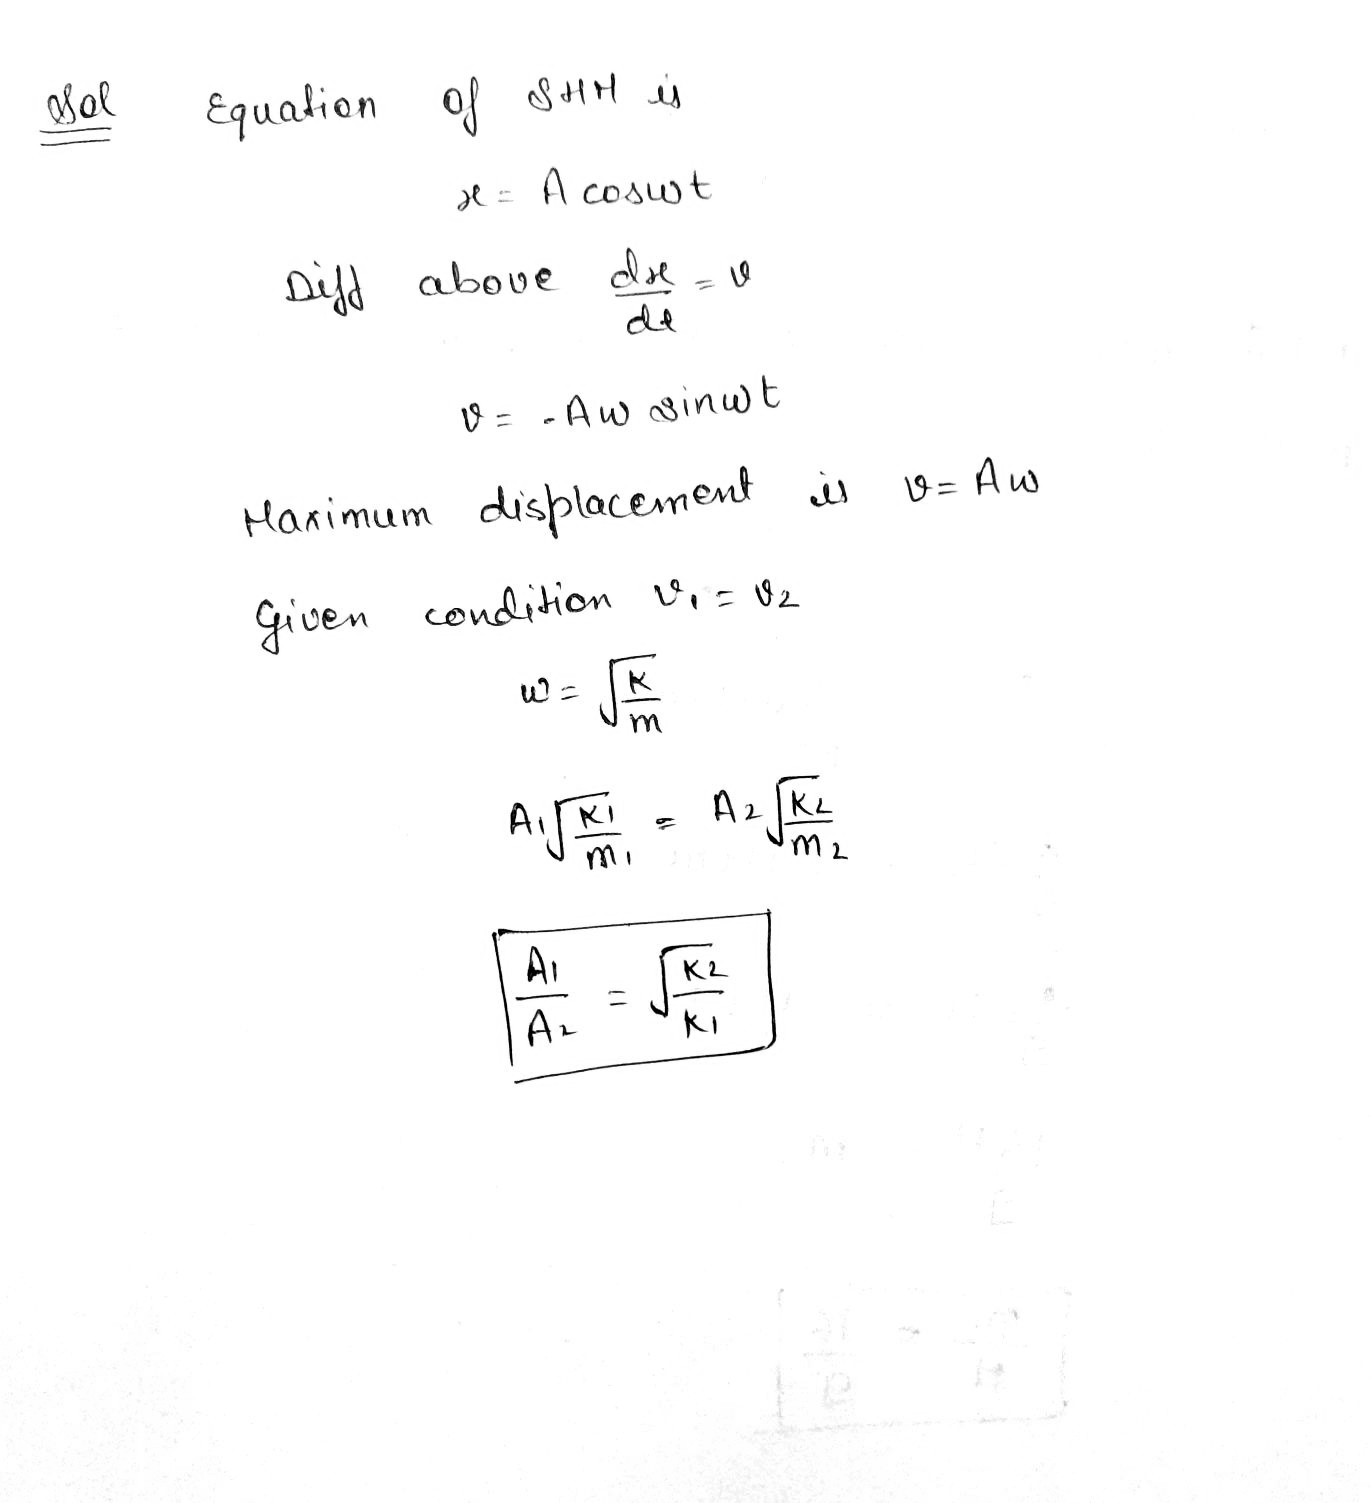 Sol Equation of SHM is
x = A cosωt
Diff above dx/dt = v
v = -Aω sinωt
Maximum displacement is v = Aω
Given condition v₁ = v₂
ω = √(K/m)
A₁√(K₁/m₁) = A₂√(K₂/m₂)
A₁/A₂ = √(K₂/K₁)